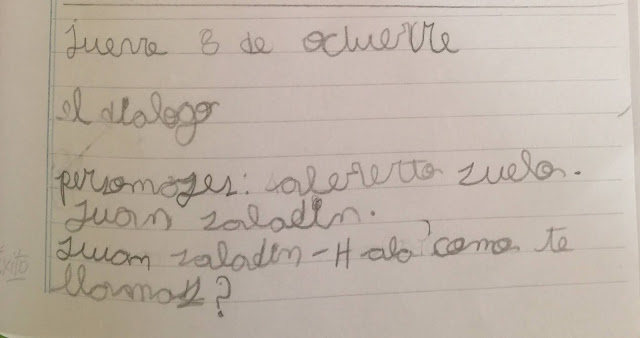 juerre 8 de octuerre
el dialogo
personajes: alererto zuelo.
Juan zaladin.
Juan zaladin - H alo' como te
llamas?